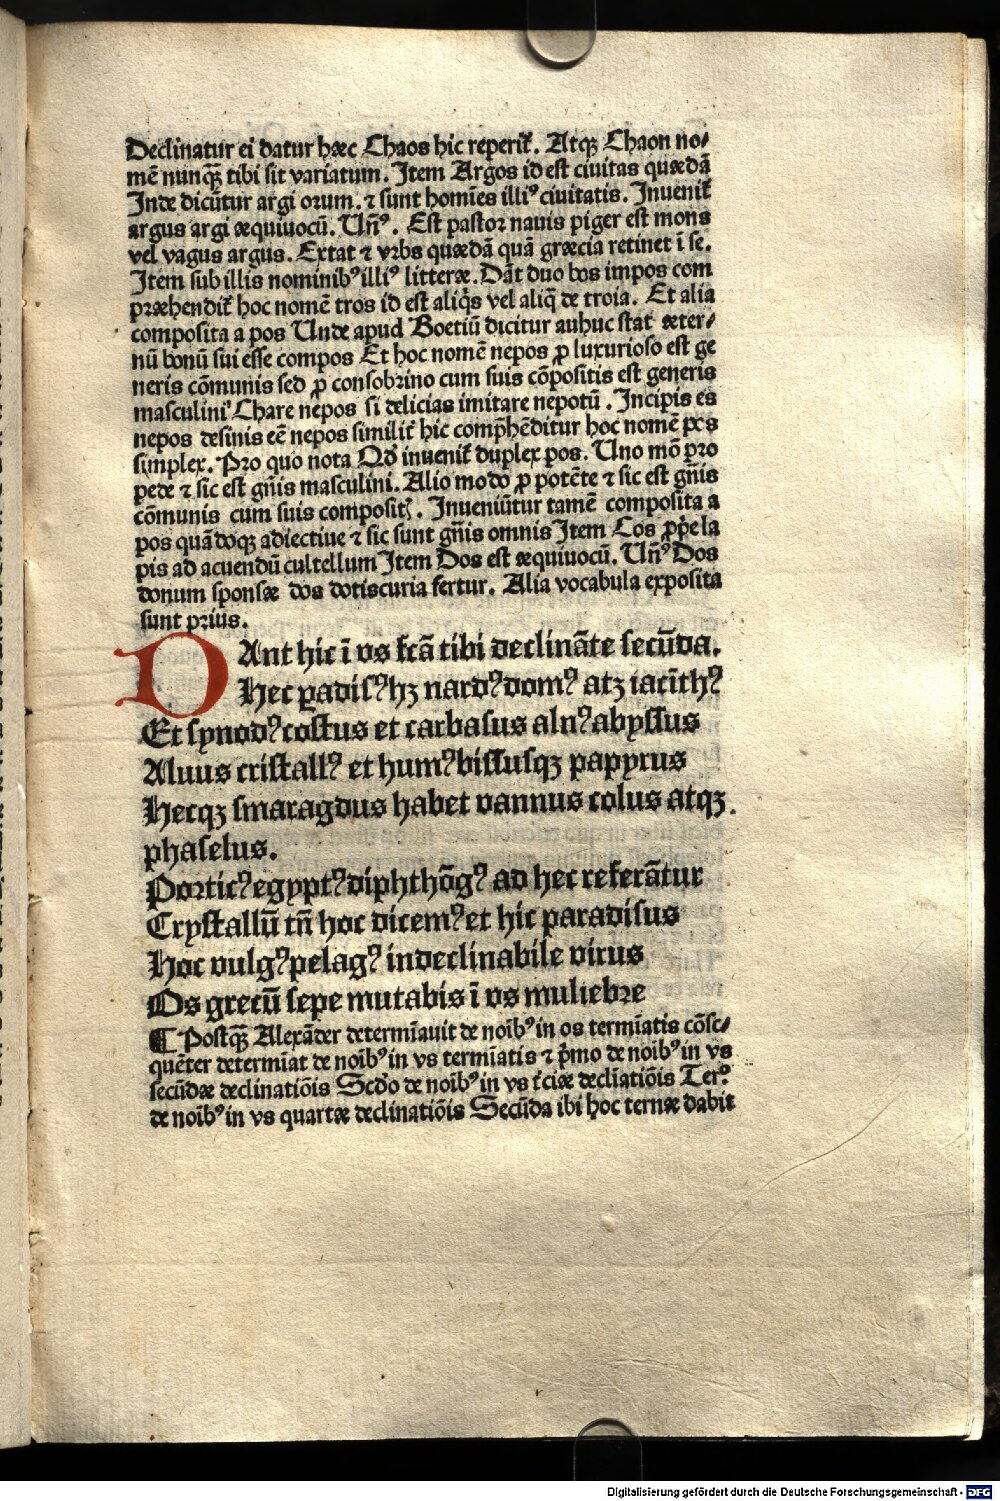 Declinatur ei datur hæc Chaos hic reperit᷑. Atqꝫ Chaon no⸗
mē nunqꝫ̄ tibi sit variatum. Item Argos id est ciuitas quædā
Inde dicūtur argi orum. ⁊ sunt homīes illiꝰ ciuitatis. Inuenit᷑
argus argi æquiuocū. Uñꝰ. Est pastor nauis piger est mons
vel vagus argus. Extat ⁊ vrbs quædā quā græcia retinet ī se.
Item sub illis nominibꝰ illiꝰ litteræ. Dāt duo bos impos com
præhendit᷑ hoc nomē tros id est aliq̄s vel aliq̄ de troia. Et alia
composita a pos Unde apud Boetiū dicitur auhuc stat æter⸗
nū bonū sui esse compos Et hoc nomē nepos ꝓ luxurioso est ge
neris cōmunis sed ꝓ consobrino cum suis cōpositis est generis
masculini Chare nepos si delicias imitare nepotū. Incipis es
nepos desinis eē nepos similit᷑ hic comp̄hēditur hoc nomē pos
simplex. Pro quo nota Qd̄ inuenit᷑ duplex pos. Uno mō pro
pede ⁊ sic est gn̄is masculini. Alio modo ꝓ potēte ⁊ sic est gn̄is
cōmunis cum suis compositꝭ. Inueniūtur tamē composita a
pos quādoqꝫ adiectiue ⁊ sic sunt gn̄is omnis Item Cos ꝓp̄e la
pis ad acuendū cultellum Item Dos est æquiuocū. Uñꝰ Dos
donum sponsæ dos dotiscuria fertur. Alia vocabula exposita
sunt prius.
DAnt hic ī vs fcā tibi declināte secūda.
Hec ꝑadisꝰ hꝫ nardꝰ domꝰ atꝫ iacīthꝰ
Et synodꝰ costus et carbasus alnꝰ abyssus
Aluus cristallꝰ et humꝰ bissusqꝫ papyrus
Hecqꝫ smaragdus habet vannus colus atqꝫ.
phaselus.
Porticꝰ egyptꝰ diphthōgꝰ ad hec referātur
Crystallū tn̄ hoc dicemꝰ et hic paradisus
Hoc vulgꝰ pelagꝰ indeclinabile virus
Os grecū sepe mutabis ī vs muliebre
¶ Postqꝫ̄ Alexāder determīauit de noībꝰ in os termīatis cōse⸗
quēter determīat de noībꝰ in vs termīatis ⁊ p̄mo de noībꝰ in vs
secūdæ declinatiōis Scdo de noībꝰ in vs t᷑ciæ declīatiōis Terꝰ.
de noībꝰ in vs quartæ declinatiōis Secūda ibi hoc ternæ dabit
Digitalisierung gefördert durch die Deutsche Forschungsgemeinschaft - DFG